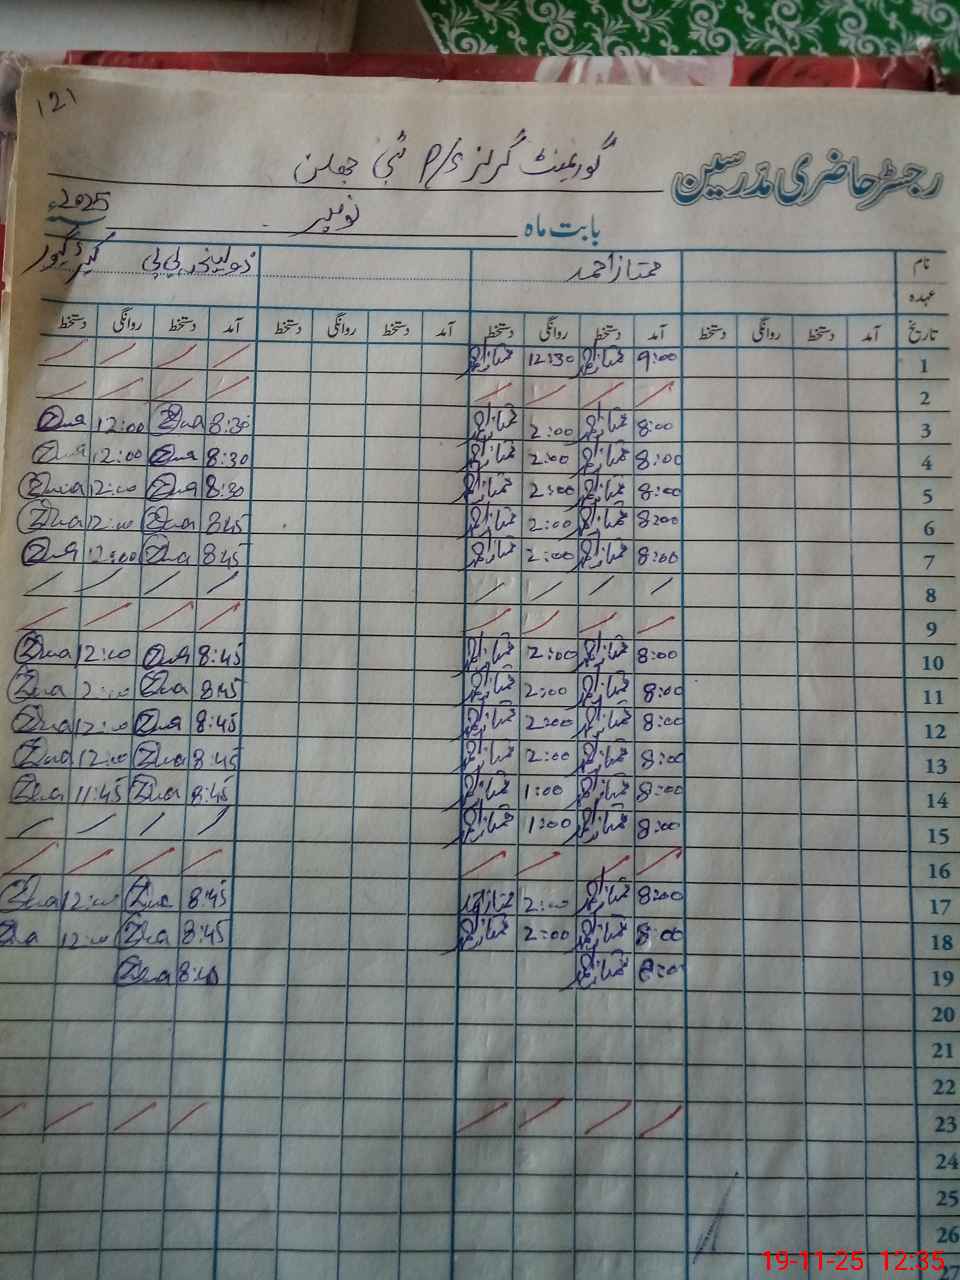 121
رجسٹر حاضری مدرسین گورنمنٹ گرلز P/S ٹبی جھلن
بابت ماہ نومبر 2025ء
نام ممتاز احمد ذولیخہ بی بی کیئر گیور
عہدہ
تاریخ آمد دستخط روانگی دستخط آمد دستخط روانگی دستخط آمد دستخط روانگی دستخط آمد دستخط روانگی دستخط
1 9:00 ممتاز احمد 12:30 ممتاز احمد
2
3 8:00 ممتاز احمد 2:00 ممتاز احمد 8:30 12:00
4 8:00 ممتاز احمد 2:00 ممتاز احمد 8:30 12:00
5 8:00 ممتاز احمد 2:00 ممتاز احمد 8:30 12:00
6 8:00 ممتاز احمد 2:00 ممتاز احمد 8:45 12:00
7 8:00 ممتاز احمد 2:00 ممتاز احمد 8:45 12:00
8
9
10 8:00 ممتاز احمد 2:00 ممتاز احمد 8:45 12:00
11 8:00 ممتاز احمد 2:00 ممتاز احمد 8:45 12:00
12 8:00 ممتاز احمد 2:00 ممتاز احمد 8:45 12:00
13 8:00 ممتاز احمد 2:00 ممتاز احمد 8:45 12:00
14 8:00 ممتاز احمد 1:00 ممتاز احمد 8:45 11:45
15 8:00 ممتاز احمد 1:00 ممتاز احمد
16
17 8:00 ممتاز احمد 2:00 ممتاز احمد 8:45 12:00
18 8:00 ممتاز احمد 2:00 ممتاز احمد 8:45 12:00
19 8:00 ممتاز احمد 8:40
20
21
22
23
24
25
26
27
19-11-25 12:35